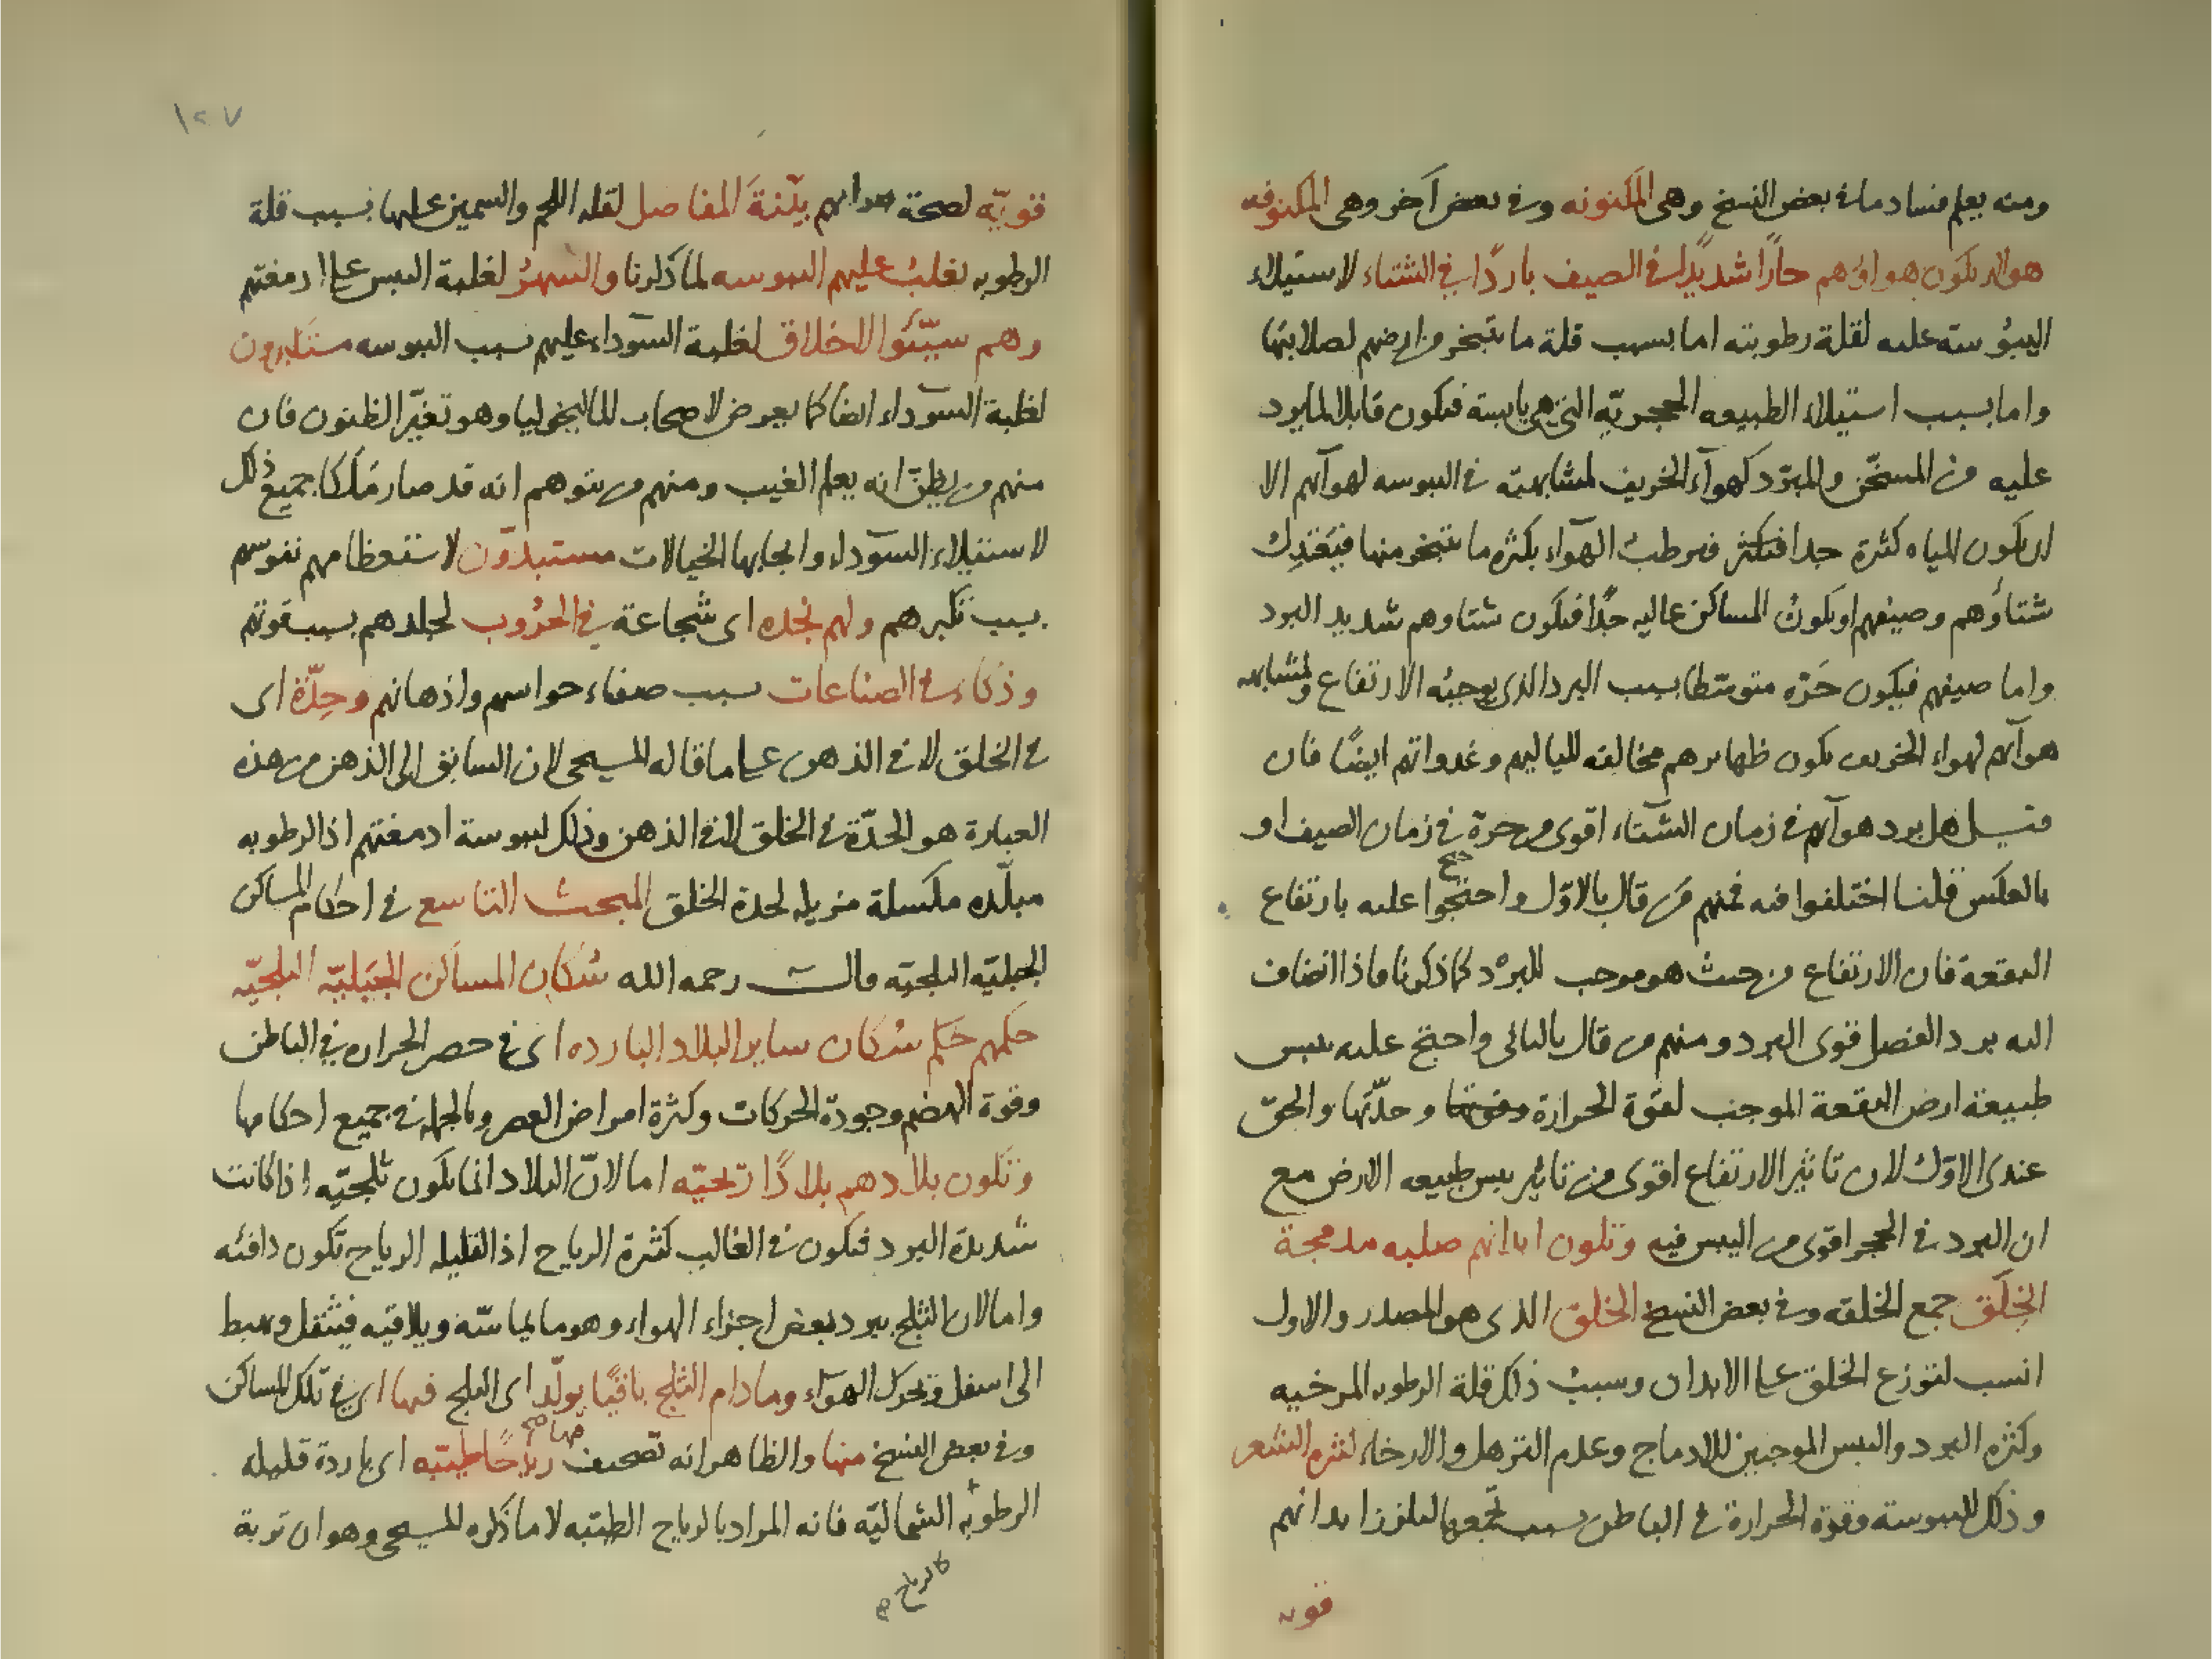 ومنه يعلم فساد ما فى بعض النسخ وهى المكنونه وفى بعض آخر وهى المكنوفه
هوائهم يكون هواؤهم حارًا شديدًا فى الصيف باردًا فى الشتاء لاستيلاء
اليبوسة عليه لقلة رطوبته اما بسبب قلة ما يتبخر من ارضهم لصلابتها
واما بسبب استيلاء الطبيعه الحجريّه التى هى يابسة فيكون قابلا لما يرد
عليه من المسخّن والمبرّد كهوآء الخريف لمشابهته فى اليبوسه لهوآئهم الا
ان يكون المياه كثرة جدا فتكثر فيرطب الهوآء بكثره ما يتبخر منها فيعتدل
شتاؤهم وصيفهم او يكون المساكن عاليه جدًا فيكون شتاوهم شديد البرد
واما صيفهم فيكون حَرّه متوسّطا بسبب البرد الذى يوجبه الارتفاع ولمشابهه
هوآئهم لهواء الخريف يكون ظهايرهم مخالفه لليالهم وغدواتهم ايضًا فان
قيل هل برد هوآئهم فى زمان الشتاء اقوى من حرّه فى زمان الصيف او
بالعكس قلنا اختلفوا فيه فمنهم من قال بالاوّل واحتجوا عليه بارتفاع
البقعة فان الارتفاع من حيث هو موجب للبرد كما ذكرنا فاذا انضاف
اليه برد الفصل قوى البرد ومنهم من قال بالثانى واحتج عليه بيبس
طبيعة ارض البقعة الموجب لقوة الحرارة وقوتها وحدّتها والحق
عندى الاوّل لان تاثير الارتفاع اقوى من تاثير يبس طبيعه الارض مع
ان البرد فى الحجر اقوى من اليبس فيه وتكون ابدانهم صلبه مدمجة
الخِلَق جمع الخلقه وفى بعض النسخ الخلق الذى هو المصدر والاول
انسب لتوزع الخلق على الابدان وسبب ذلك قلة الرطوبه المرخيه
وكثره البرد واليبس الموجبين للادماج وعدم الترهل والارخاء كثره الشعر
وذلك لليبوسة وقوة الحرارة فى الباطن بسبب تجمعها لتلزز ابدانهم
قويه
١٢٧
قويّه لصحة ابدانهم بيّنةَ المفاصل لقله اللحم والسمين عليها بسبب قلة
الرطوبه تغلب عليهم اليبوسه لما ذكرنا والسهرُ لغلبة اليبس على ادمغتهم
وهم سيّئوا الاخلاق لغلبة السّوداء عليهم بسبب اليبوسه متكبرون
لغلبة السوداء ايضا كما يعرض لاصحاب الماليخوليا وهو تغيّر الظنون فان
منهم من يظنّ انه يعلم الغيب ومنهم من يتوهم انه قد صار مَلكا جميع ذلك
لاستيلاء السوداء وايجابها الخيالات مستبدّون لاستعظامهم نفوسهم
بسبب تكبرهم ولهم نجده اى شجاعة فى الحرُوب لجلدهم بسبب قوتهم
وذكاء فى الصناعات بسبب صفاء حواسهم واذهانهم وحِدّة اى
فى الخلق لا فى الذهن على ما قاله المسيحى لان السابق الى الذهن من هذه
العبارة هو الحدّة فى الخلق لا فى الذهن وذلك ليبوسة ادمغتهم اذ الرطوبه
مبلّده مكسلة مزيله لحدة الخلق المبحث التاسع فى احكام المساكن
الجبليّه الثلجيه قال رحمه الله سُكان المساكن الجبَليّه الثلجيّه
حكمهم حكم سُكان ساير البلاد البارده اى فى حصر الحراره فى الباطن
وقوة الهضم وجودة الحركات وكثرة امراض العصر وبالجمله فى جميع احكامها
وتكون بلادهم بلادًا ريحيّه اما لانّ البلاد انما يكون ثلجيّه اذا كانت
شديدة البرد فيكون فى الغالب كثيرة الرياح اذ القليله الرياح تكون دافئه
واما لان الثلج يبرد بعض اجزاء الهواء وهو ما يماسّه ويلاقيه فيثقل ويهبط
الى اسفل وتحرك الهوآء وما دام الثلج باقيًا يولّد اى الثلج فيها اى فى تلك المساكن
وفى بعض النسخ منها والظاهر انه تصحيف فيها صح رياحًا طيّبه اى باردة قليله
الرطوبه الشماليّه فانه المراد بالرياح الطيّبه لا ما ذكره المسيحى وهو ان تربة
كالرياح صح